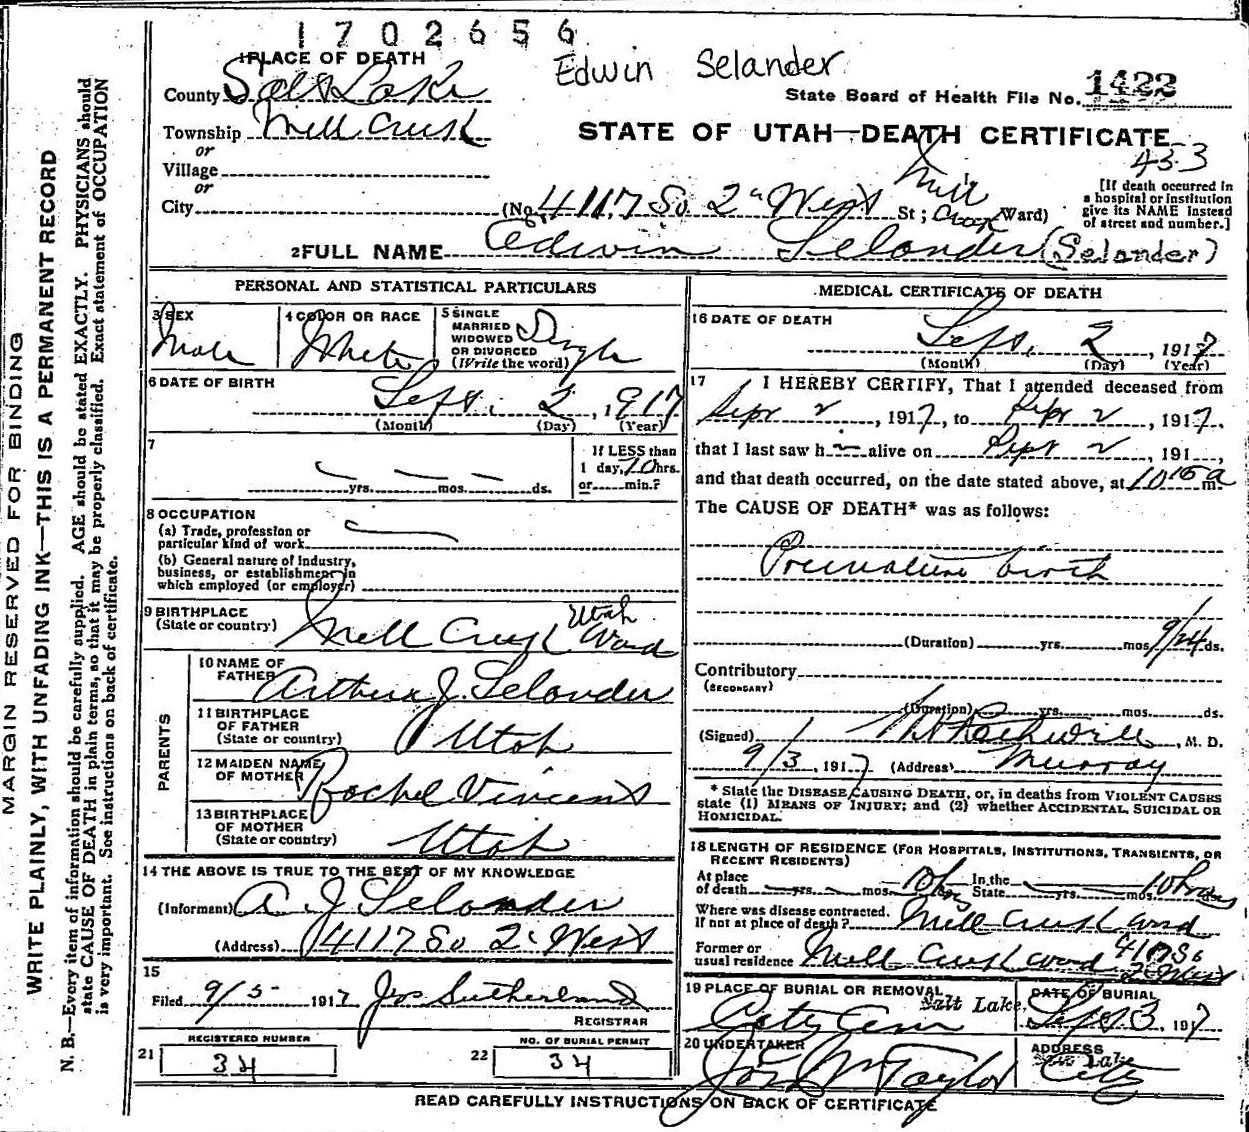 1702656
Edwin Selander
1 PLACE OF DEATH
County Salt Lake
State Board of Health File No. 1422
Township Mill Creek
STATE OF UTAH—DEATH CERTIFICATE
or
433
Village
or
City (No. 4117 So 2nd West St; Mill Creek Ward)
[If death occurred in
a hospital or institution
give its NAME instead
of street and number.]
2 FULL NAME Edwin Selander (Selander)
PERSONAL AND STATISTICAL PARTICULARS
3 SEX
Male
4 COLOR OR RACE
White
5 SINGLE
MARRIED
WIDOWED
OR DIVORCED
(Write the word)
Single
6 DATE OF BIRTH
Sept. 2, 1917
(Month) (Day) (Year)
7
yrs. mos. ds.
If LESS than
1 day, 10 hrs.
or min.?
8 OCCUPATION
(a) Trade, profession or
particular kind of work
(b) General nature of industry,
business, or establishment in
which employed (or employer)
9 BIRTHPLACE
(State or country)
Mill Creek Ward Utah
PARENTS
10 NAME OF
FATHER
Arthur J. Selander
11 BIRTHPLACE
OF FATHER
(State or country)
Utah
12 MAIDEN NAME
OF MOTHER
Rachel Vincent
13 BIRTHPLACE
OF MOTHER
(State or country)
Utah
14 THE ABOVE IS TRUE TO THE BEST OF MY KNOWLEDGE
(Informant) A. J. Selander
(Address) 4117 So 2d West
15
Filed 9/5 1917 Jos Sutherland
REGISTRAR
REGISTERED NUMBER
21 34
NO. OF BURIAL PERMIT
22 34
MEDICAL CERTIFICATE OF DEATH
16 DATE OF DEATH
Sept. 2, 1917
(Month) (Day) (Year)
17 I HEREBY CERTIFY, That I attended deceased from
Sept 2, 1917, to Sept 2, 1917,
that I last saw h alive on Sept 2, 191 ,
and that death occurred, on the date stated above, at 10 15 a m.
The CAUSE OF DEATH* was as follows:
Premature birth
(Duration) yrs. mos. 9/24 ds.
Contributory
(SECONDARY)
(Duration) yrs. mos. ds.
(Signed) Rothwell, M. D.
9/3, 1917 (Address) Murray
* State the DISEASE CAUSING DEATH, or, in deaths from VIOLENT CAUSES
state (1) MEANS OF INJURY; and (2) whether ACCIDENTAL, SUICIDAL OR
HOMICIDAL.
18 LENGTH OF RESIDENCE (FOR HOSPITALS, INSTITUTIONS, TRANSIENTS, OR
RECENT RESIDENTS)
At place
of death yrs. mos. 10 hrs In the
State yrs. mos. 10 hrs
Where was disease contracted.
If not at place of death? Mill Creek Ward
Former or
usual residence Mill Creek Ward 4117 So 2d West
19 PLACE OF BURIAL OR REMOVAL
City Cem Salt Lake,
DATE OF BURIAL
Sept 3, 1917
20 UNDERTAKER
Jos Wm Taylor
ADDRESS
Salt Lake
City
READ CAREFULLY INSTRUCTIONS ON BACK OF CERTIFICATE
MARGIN RESERVED FOR BINDING
WRITE PLAINLY, WITH UNFADING INK—THIS IS A PERMANENT RECORD
N. B.—Every item of information should be carefully supplied. AGE should be stated EXACTLY. PHYSICIANS should
state CAUSE OF DEATH in plain terms, so that it may be properly classified. Exact statement of OCCUPATION
is very important. See instructions on back of certificate.